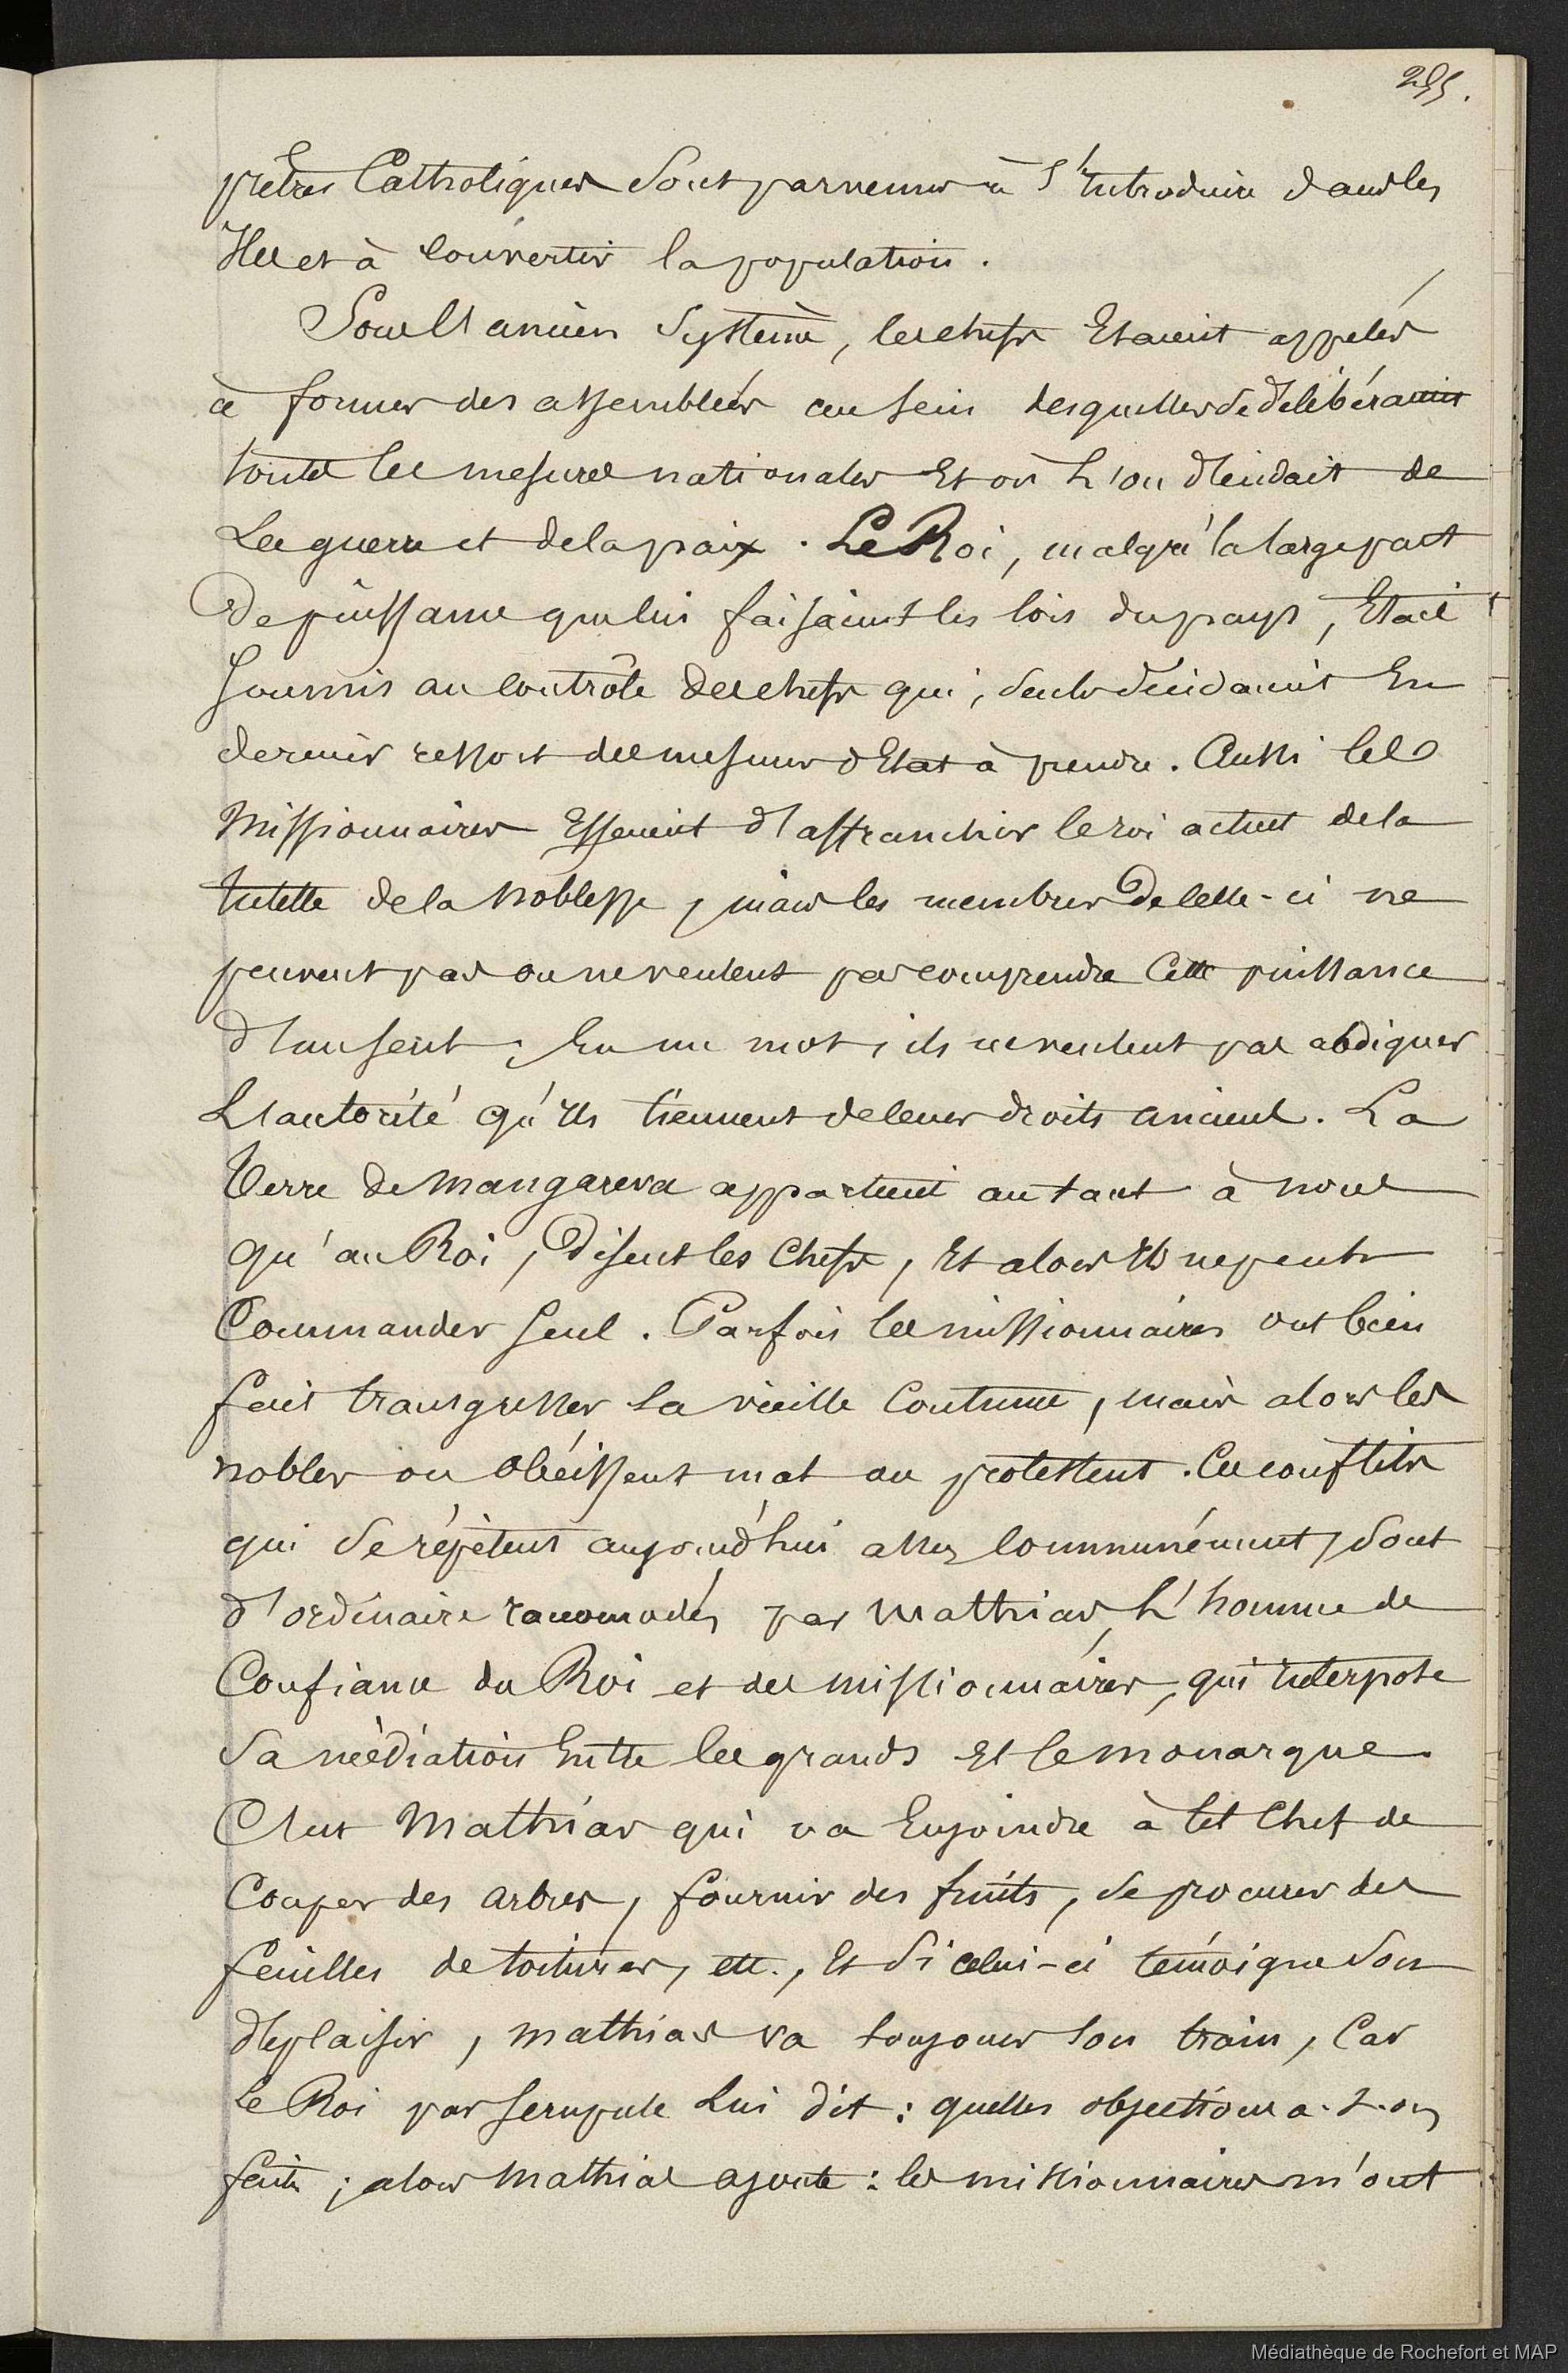 295.
prêtres Catholiques sont parvenus à s'introduire dans les
Iles et à convertir la population.
Sous l'ancien système, les chefs Etaient appelés
à former des assemblées au sein desquelles se délibéraient
toutes les mesures nationales Et où l'on décidait de
La guerre et de la paix. Le Roi, malgré la large part
De puissance que lui faisaient les lois du pays, Etait
soumis au contrôle des chefs qui, seuls décidaient En
dernier ressort des mesures d'Etat à prendre. Aussi les
Missionnaires Essaient d'affranchir le roi actuel de la
tutelle de la noblesse, mais les membres De celle-ci ne
peuvent pas ou ne veulent pas comprendre Cette puissance
d'un seul; En un mot, ils ne veulent pas abdiquer
L'autorité qu'ils tiennent de leurs droits anciens. La
Terre de Mangareva appartient autant à nous
qu'au Roi, Disent les Chefs, Et alors Il ne peut
Commander seul. Parfois les missionnaires ont bien
fait transgresser la vieille Coutume, mais alors les
nobles ou obéissent mal ou protestent. Ces conflits
qui se répètent aujourd'hui assez communément, sont
d'ordinaire racomodés par Mathias, L'homme de
Confiance du Roi et des missionnaires, qui interpose
sa médiation Entre les grands Et le monarque.
C'est Mathias qui va Enjoindre à tel Chef de
Couper des arbres, fournir des fruits, se procurer des
feuilles de toitures, etc., Et si celui-ci témoigne son
déplaisir, Mathias va toujours son train, Car
Le Roi par scrupule Lui dit: quelles objections a-t-on
faites; alors Mathias ajoute: les missionnaires m'ont
Médiathèque de Rochefort et MAP